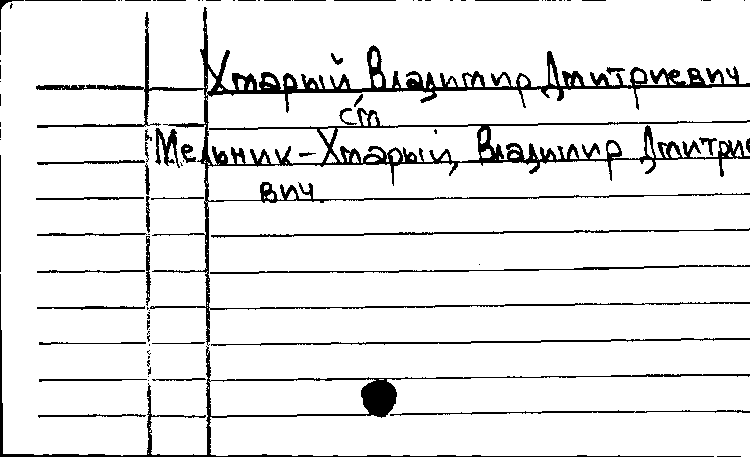 Хтарый Владимир Дмитриевич
см
Мельник-Хтарый, Владимир Дмитрие
вич.